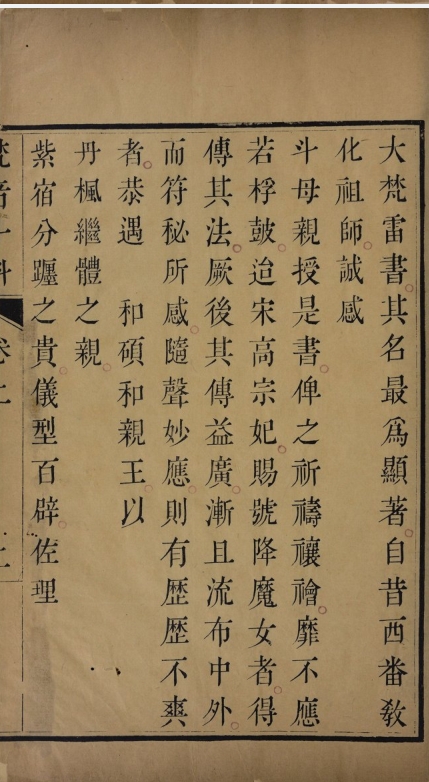 大梵雷書其名最爲顯著自昔西番敎
化祖師誠感
斗母親授是書俾之祈禱禳禬靡不應
若桴鼓迨宋高宗妃賜號降魔女者得
傳其法厥後其傳益廣漸且流布中外
而符秘所感隨聲妙應則有歷歷不爽
者恭遇　和碩和親王以
丹楓繼體之親
紫宿分躔之貴儀型百辟佐理
梵音斗科　卷上